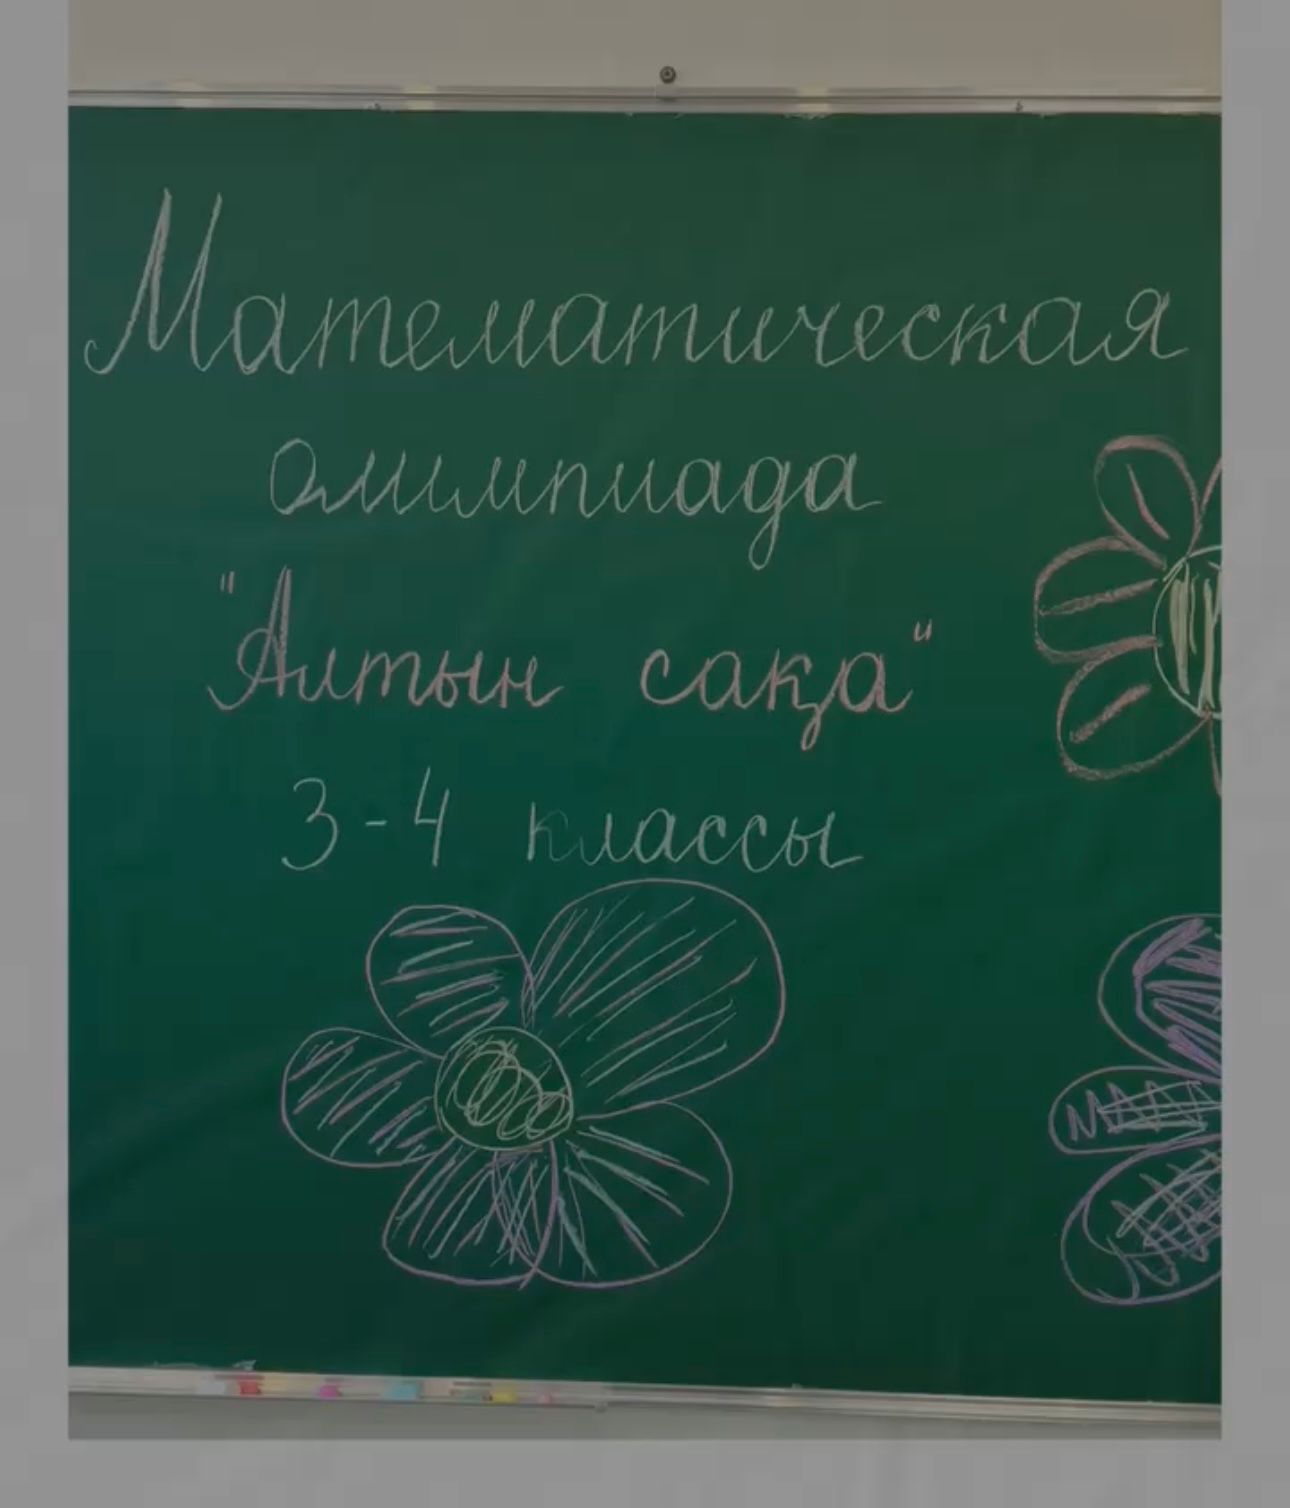 Математическая
олимпиада
"Алтын сақа"
3-4 классы